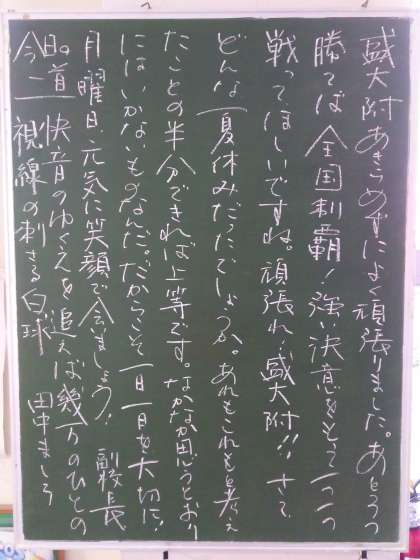 盛大附あきらめずによく頑張りました。あと二つ
勝てば全国制覇！強い決意をもって一つ一つ
戦ってほしいですね。頑張れ！盛大附!!さて
どんな夏休みだったでしょうか。あれもこれもと考え
たことの半分できれば上等です。なかなか思うとおり
にはいかないものなんだ。だからこそ一日一日を大切に!!
月曜日、元気に笑顔で会いましょう！ 副校長
今日の一首 快音のゆくえを追えば幾万のひとの
視線の刺さる白球 田中ましろ